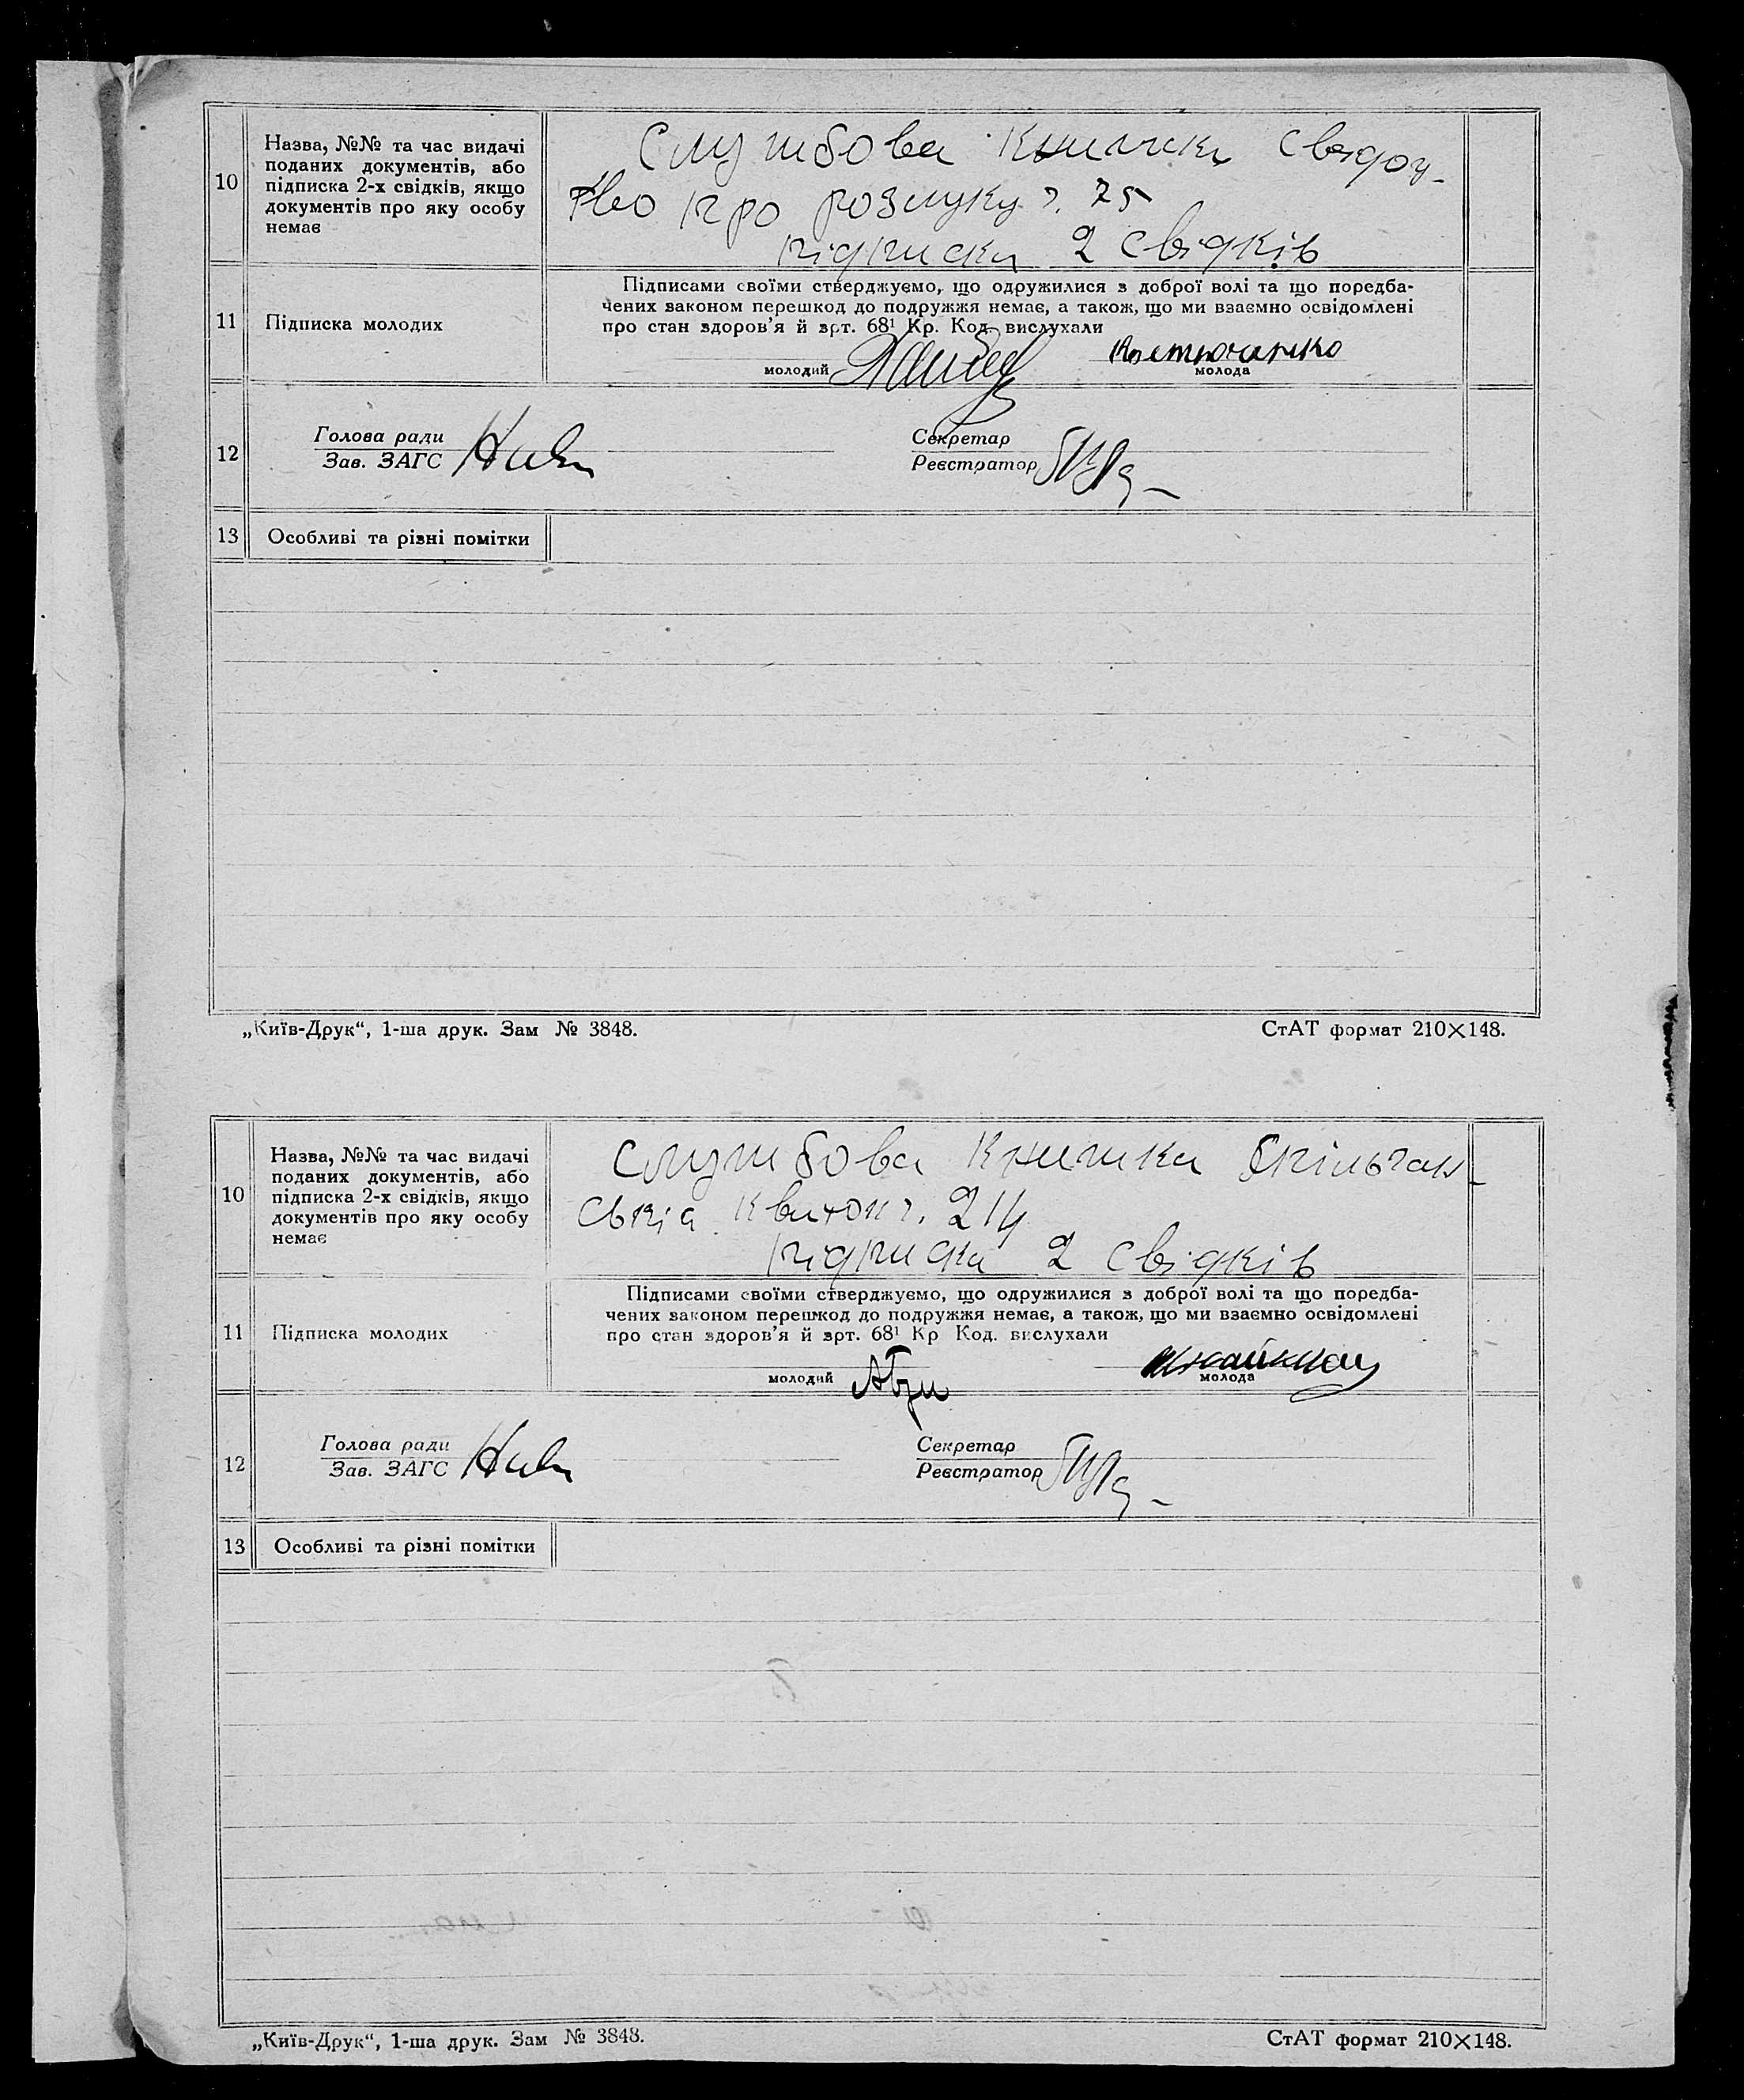 10
Назва, №№ та час видачі
поданих документів, або
підписка 2-х свідків, якщо
документів про яку особу
немає
Службова книжка свідоц-
тво про розлуку ч. 75
підписка 2 свідків
11
Підписка молодих
Підписами своїми стверджуємо, що одружилися з доброї волі та що поредба-
чених законом перешкод до подружжя немає, а також, що ми взаємно освідомлені
про стан здоров'я й зрт. 68¹ Кр. Код. вислухали
молодий
молода
12
Голова ради
Зав. ЗАГС
Секретар
Реєстратор
13
Особливі та різні помітки
„Київ-Друк“, 1-ша друк. Зам № 3848.
СтАТ формат 210×148.
10
Назва, №№ та час видачі
поданих документів, або
підписка 2-х свідків, якщо
документів про яку особу
немає
Службова книжка
квиток ч. 214
підписка 2 свідків
11
Підписка молодих
Підписами своїми стверджуємо, що одружилися з доброї волі та що поредба-
чених законом перешкод до подружжя немає, а також, що ми взаємно освідомлені
про стан здоров'я й зрт. 68¹ Кр Код. вислухали
молодий
молода
12
Голова ради
Зав. ЗАГС
Секретар
Реєстратор
13
Особливі та різні помітки
„Київ-Друк“, 1-ша друк. Зам № 3848.
СтАТ формат 210×148.